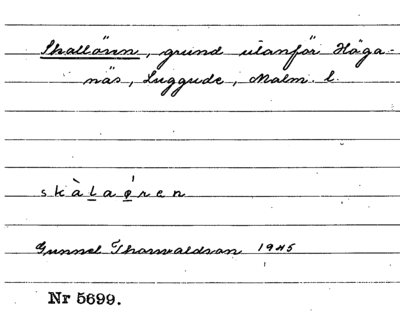 Skallören, grund utanför Höga-
näs, Luggude, Malm. l.
skàlaøren
Gunnel Thorvaldson 1945
Nr 5699.